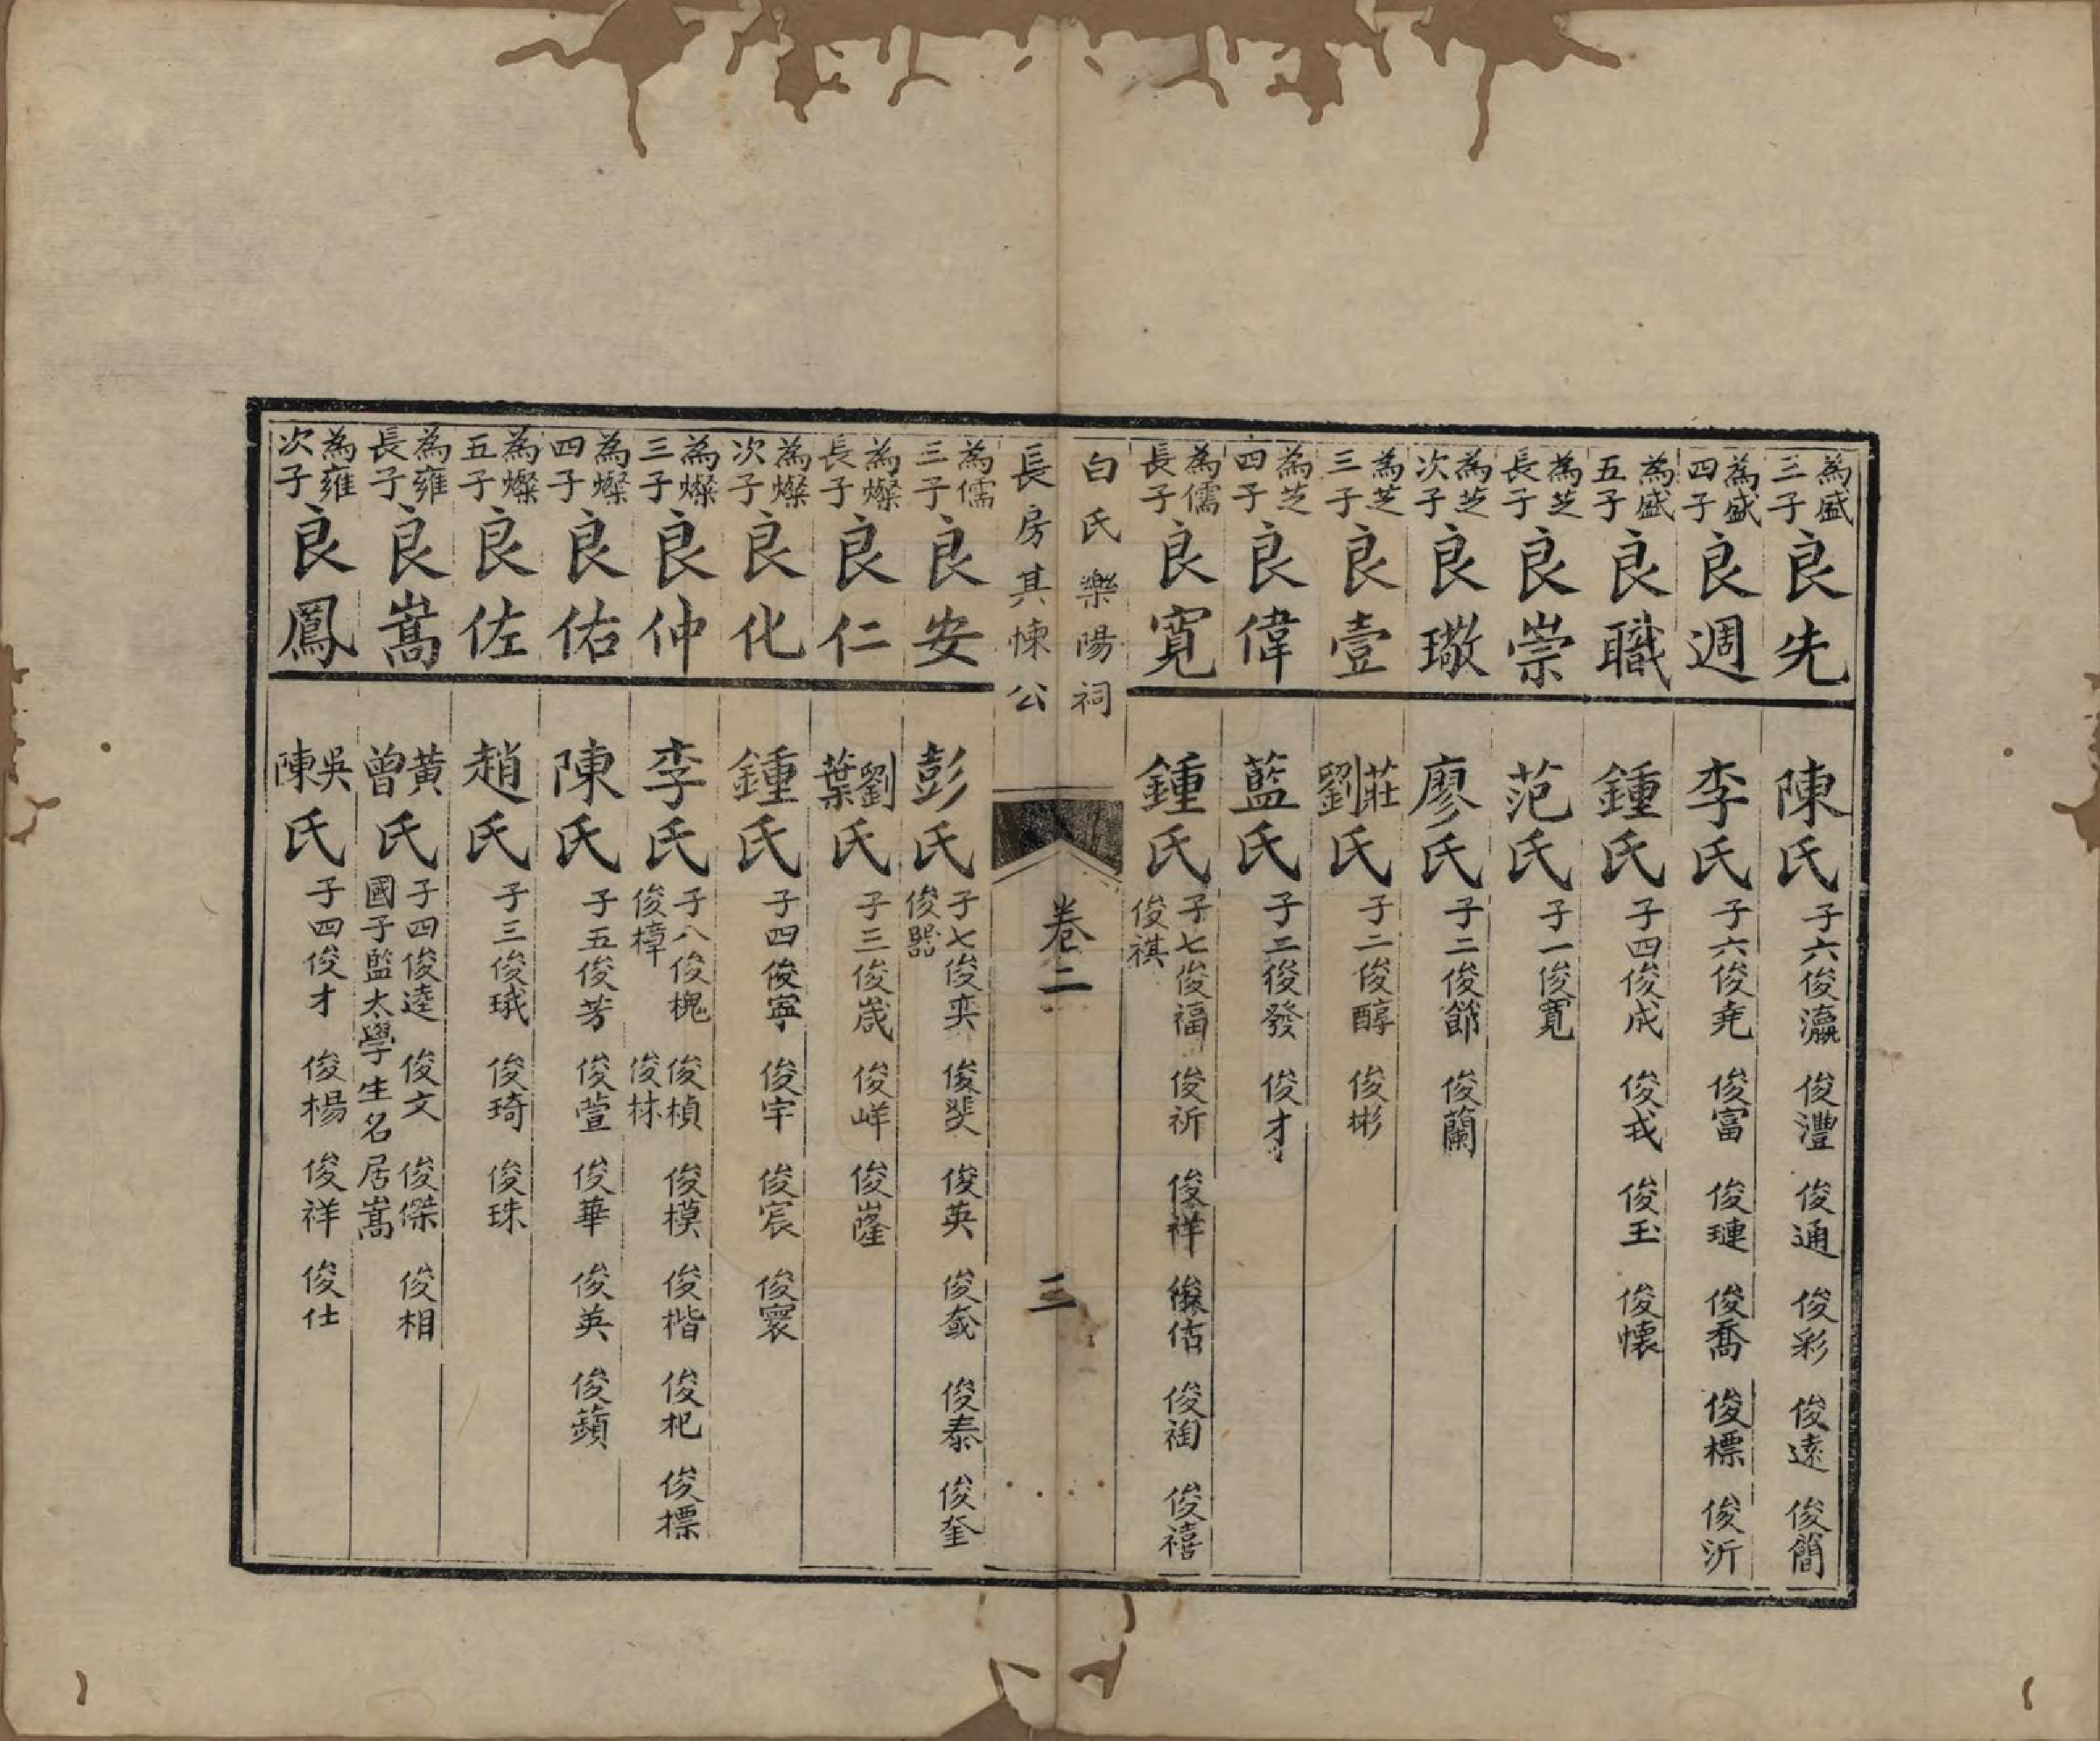 為盛三子 良先 陳氏 子六俊瀛 俊灃 俊通 俊彩 俊遠 俊簡
為盛四子 良週 李氏 子六俊尭 俊富 俊璉 俊喬 俊標 俊沂
為盛五子 良職 鍾氏 子四俊成 俊戎 俊玉 俊懷
為芝長子 良崇 范氏 子一俊寬
為芝次子 良璥 廖氏 子二俊節 俊蘭
為芝三子 良壹 莊劉氏 子二俊醇 俊彬
為芝四子 良偉 藍氏 子二俊發 俊才
為儒長子 良寬 鍾氏 子七俊福 俊祈 俊祥 俊佑 俊禂 俊禧 俊祺
白氏樂陽祠
長房其悚公
卷二
三
為儒三子 良安 彭氏 子七俊奕 俊斐 俊英 俊 俊泰 俊奎 俊器
為燦長子 良仁 劉葉氏 子三俊崴 俊峍 俊嶐
為燦次子 良化 鍾氏 子四俊寧 俊宇 俊宸 俊寰
為燦三子 良仲 李氏 子八俊槐 俊楨 俊模 俊楷 俊杞 俊標 俊樟 俊林
為燦四子 良佑 陳氏 子五俊芳 俊萱 俊華 俊英 俊蘋
為燦五子 良佐 趙氏 子三俊珴 俊琦 俊珠
為雍長子 良嵩 黃曾氏 子四俊逵 俊文 俊傑 俊相 國子監太學生名居嵩
為雍次子 良鳳 吳陳氏 子四俊才 俊楊 俊祥 俊仕